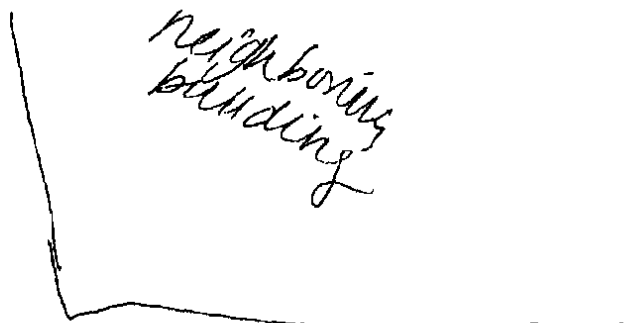 neighboring
building